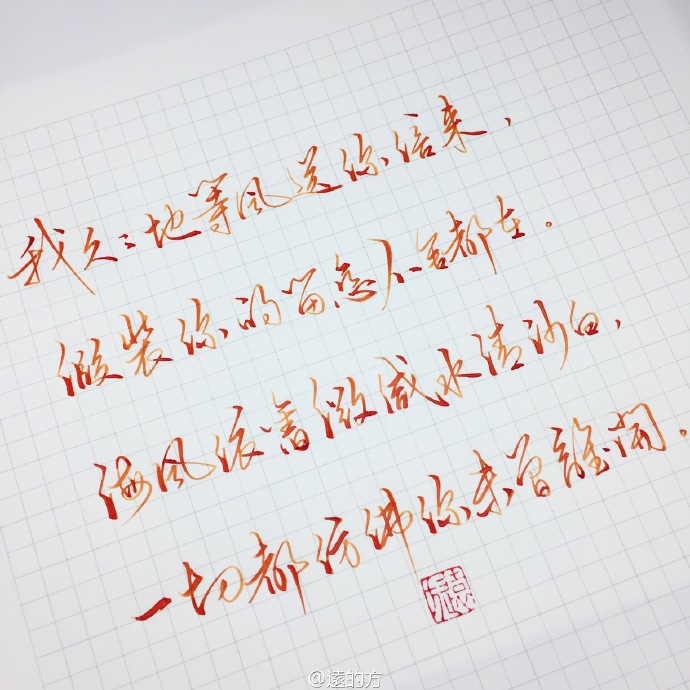 我久久地等风送你信来，
假装你的留恋人人都在。
海风依旧微咸水清沙白，
一切都仿佛你未曾離開。
@遠的方